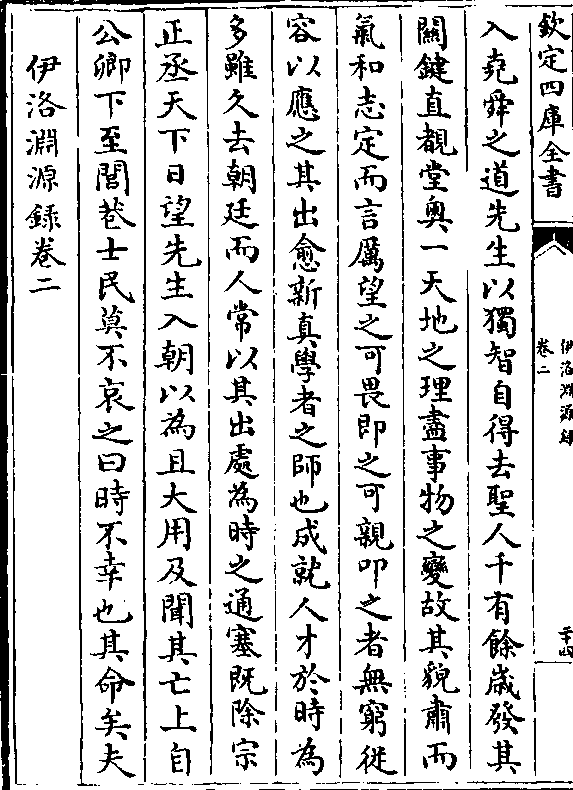 欽定四庫全書
伊洛淵源錄
卷二
二十四
入堯舜之道先生以獨智自得去聖人千有餘歲發其
關鍵直覩堂奥一天地之理盡事物之變故其貌肅而
氣和志定而言厲望之可畏即之可親叩之者無窮從
容以應之其出愈新真學者之師也成就人才於時為
多雖久去朝廷而人常以其出處為時之通塞既除宗
正丞天下日望先生入朝以為且大用及聞其亡上自
公卿下至閭巷士民莫不哀之曰時不幸也其命矣夫
伊洛淵源錄卷二